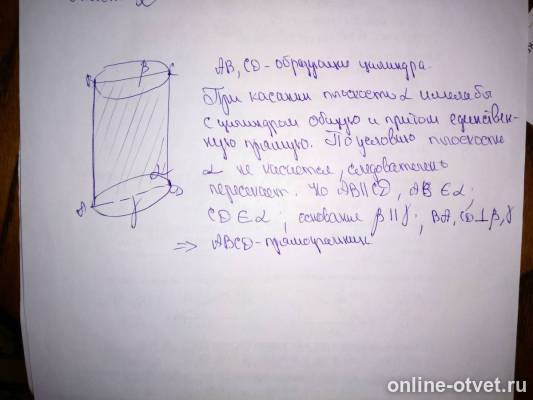 AB, CD - образующие цилиндра.
При касании плоскость α имела бы
с цилиндром общую и притом единствен-
ную прямую. По условию плоскость
α не касается, следовательно
пересекает. Но AB||CD, AB ∈ α
CD ∈ α; основание β || γ; BA, CD ⊥ β, γ
=> ABCD - прямоугольник
B
β
C
α
A
D
γ
online-otvet.ru